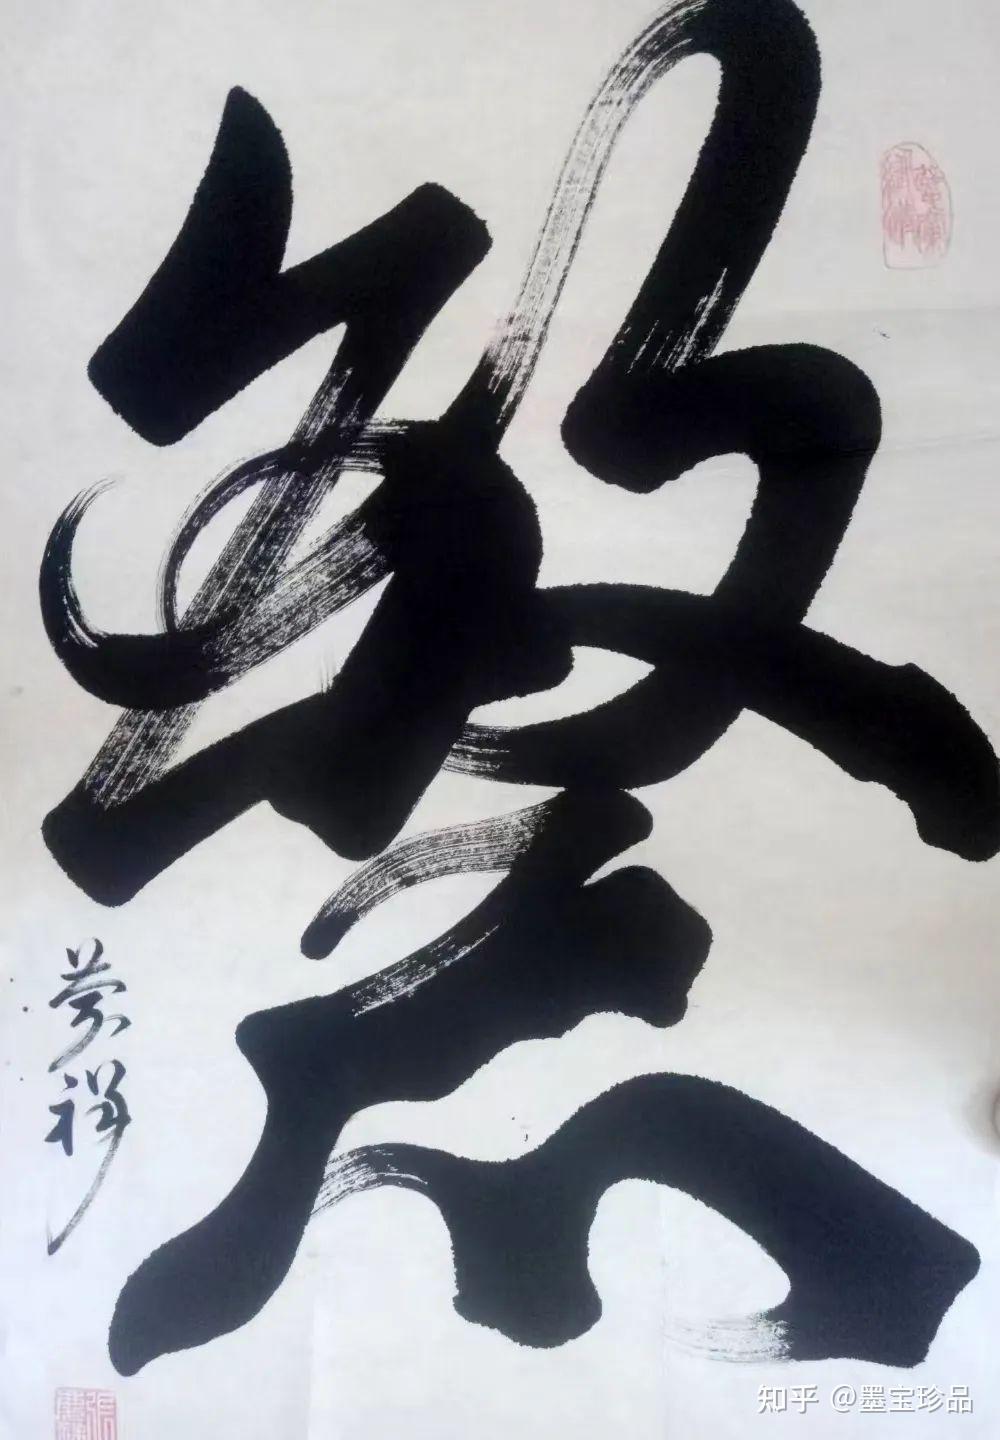 繁
荣祥
知乎 @墨宝珍品